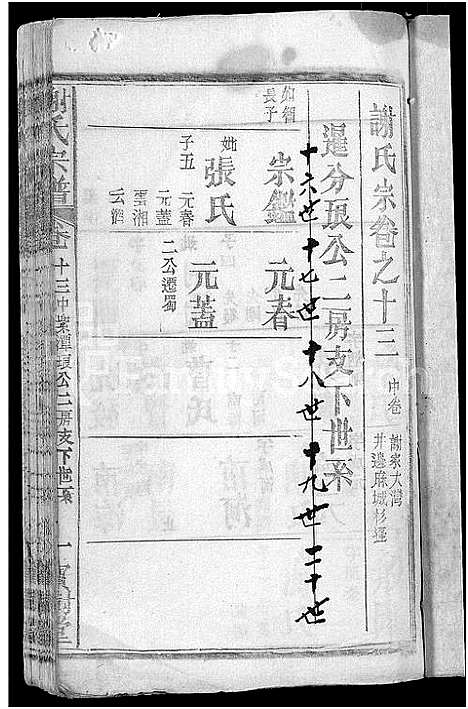 謝氏宗卷之十三 中卷 謝家大灣
井邊麻城杉
暹分琅公二房支下世系
十六世 十七世 十八世 十九世 二十世
智長子
宗鑑 元春
妣張氏
子五 元春 元蓋 雲湘 云
元蓋
二公遷蜀
謝氏宗譜 卷十三中 公二房支下世系 一 寶樹堂